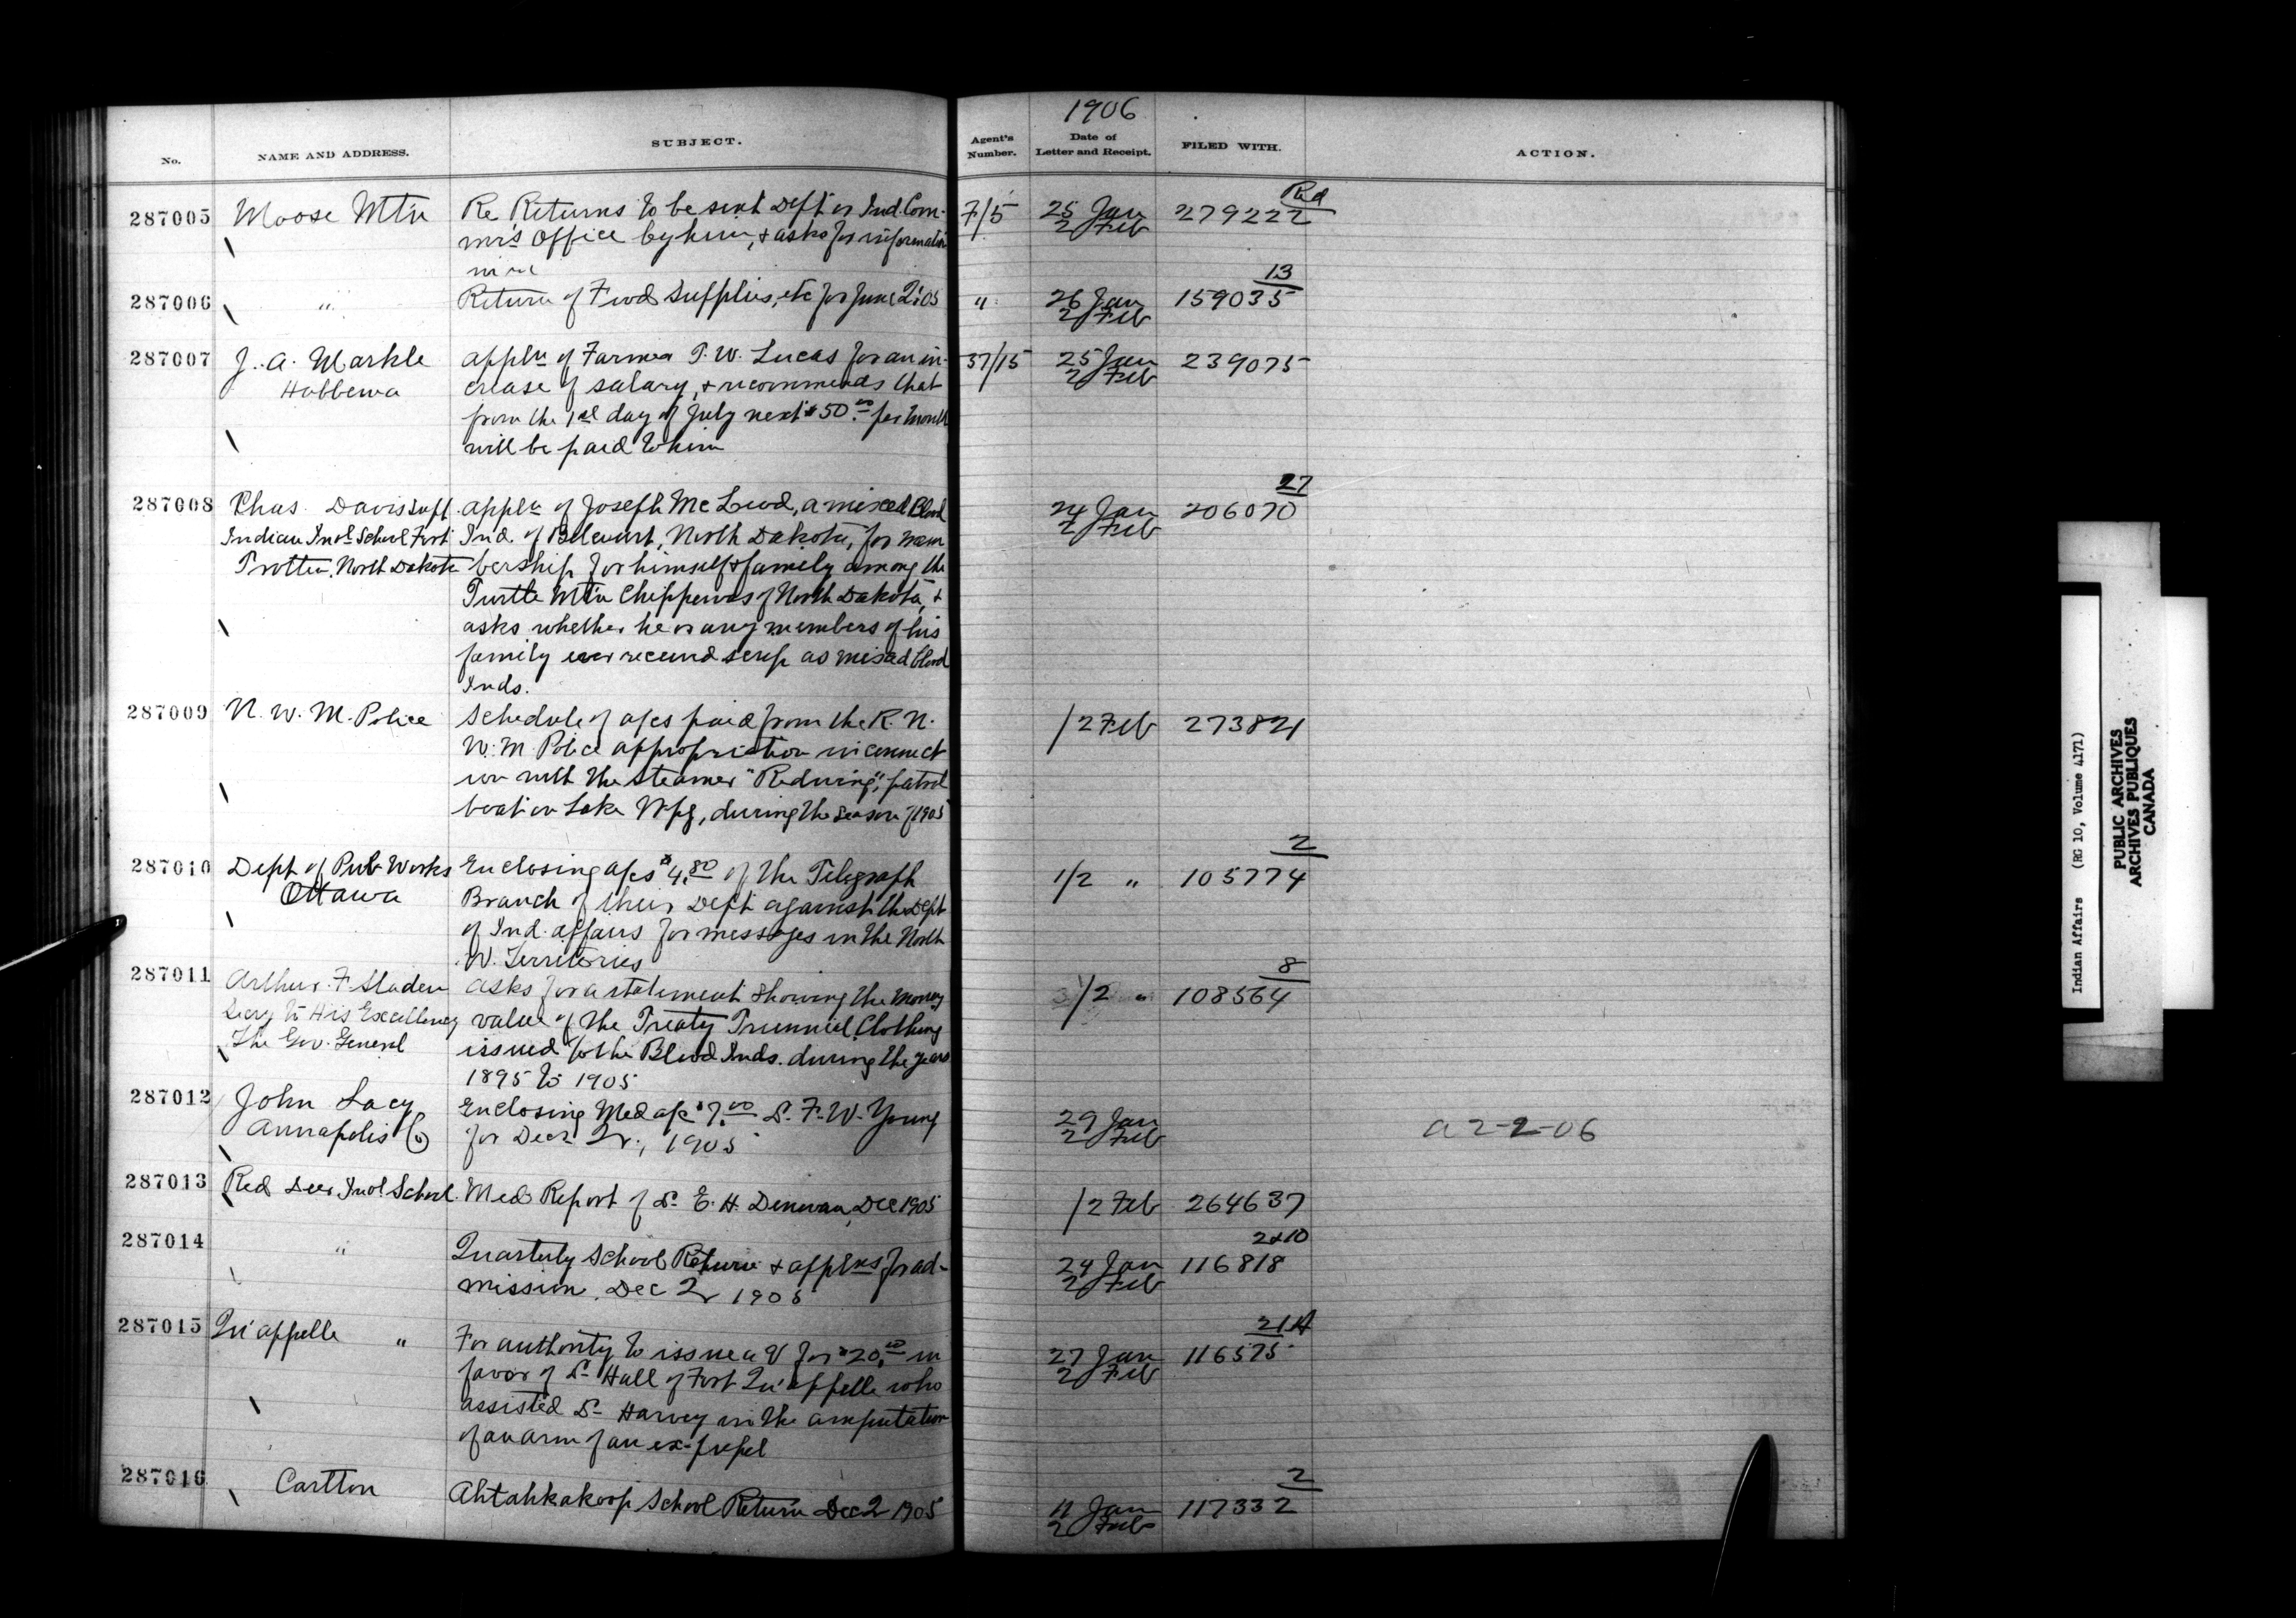 1906
No.
NAME AND ADDRESS.
SUBJECT.
Agent's Number.
Date of Letter and Receipt.
FILED WITH.
ACTION.
287005 Moose Mtn Re Returns to be sent Dept or Ind. Com- 7/5 25 Jan 279222 Rd
mr's Office by him, & asks for information 2 Feb
in re
287006 " Return of Food Supplies, etc for June Qr 05 " 26 Jan 159035 13
2 Feb
287007 J. A. Markle appln of Farmer T. W. Lucas for an in- 37/15 25 Jan 239075
Hobbema crease of salary, & recommends that 2 Feb
from the 1st day of July next $50.00 per month
will be paid to him
287008 Chas. Davis Supt appln of Joseph McLeod, a mixed Blood 24 Jan 206070 27
Indian Indl School Fort Ind. of Belcourt, North Dakota, for mem 2 Feb
Trotten, North Dakota bership for himself & family among the
Turtle Mtn Chippewas of North Dakota, &
asks whether he or any members of his
family ever received scrip as mixed blood
Inds.
287009 N. W. M. Police Schedule of a/cs paid from the R. N. 1/2 Feb 273821
W. M. Police appropriation in connect
ion with the Steamer "Redwing," patrol
boat on Lake Wpg, during the season of 1905
287010 Dept of Pub Works Enclosing a/cs $4.80 of the Telegraph 1/2 " 105774 2
Ottawa Branch of their Dept against the Dept
of Ind. affairs for messages in the North
W. Territories
287011 Arthur F. Sladen asks for a statement showing the money 31/2 " 108564 8
Secy to His Excellency value of the Treaty Triennial Clothing
The Gov. General issued to the Blood Inds. during the years
1895 to 1905
287012 John Lacy Enclosing Med a/c $7.00 Dr. F. W. Young 29 Jan a 2-2-06
Annapolis Co for Decr Qr., 1905 2 Feb
287013 Red Deer Indl School. Med Report of Dr. E. H. Denovan, Dec 1905 1/2 Feb 264637
287014 " Quarterly School Return & applns for ad- 24 Jan 116818 2&10
mission, Dec Qr 1905 2 Feb
287015 Qu'appelle " For authority to issue a V for $20.00 in 27 Jan 116575 21A
favor of Dr Hall of Fort Qu'appelle who 2 Feb
assisted Dr Harvey in the amputation
of an arm of an ex-pupil
287016 Carlton Ahtahkakoop School Return Dec Q 1905 11 Jan 117332 2
2 Feb
Indian Affairs (RG 10, Volume 4171)
PUBLIC ARCHIVES
ARCHIVES PUBLIQUES
CANADA